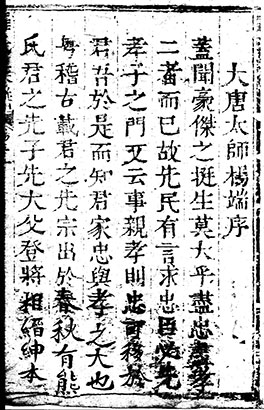 大唐太師楊端序
蓋聞豪傑之挺生莫大乎盡忠盡孝
二者而已故先民有言求忠臣必先
孝子之門又云事親孝則忠可移於
君吾於是而知君家忠與孝之大也
粵稽古載君之先宗出於春秋有熊
氏君之先子先大父登將相縉紳本